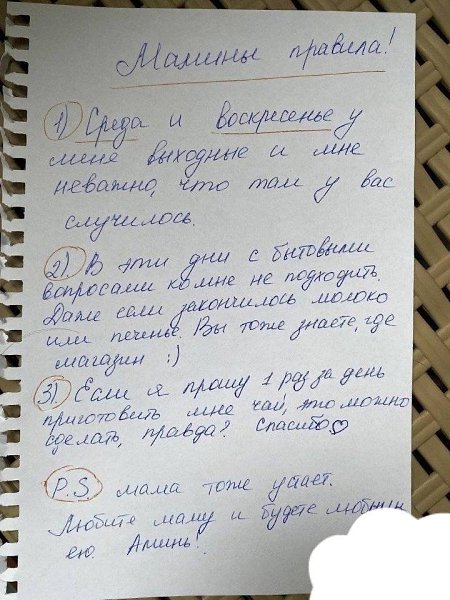 Мамины правила!
1) Среда и воскресенье у
мене выходные и мне
неважно, что там у вас
случилось.
2) В эти дни с бытовыми
вопросами ко мне не подходить.
Даже если закончилось молоко
или печенье. Вы тоже знаете, где
магазин :)
3) Если я прошу 1 раз за день
приготовить мне чай, это можно
сделать, правда? Спасибо♡
P.S. мама тоже устает.
Любите маму и будете любимы
ею. Аминь!